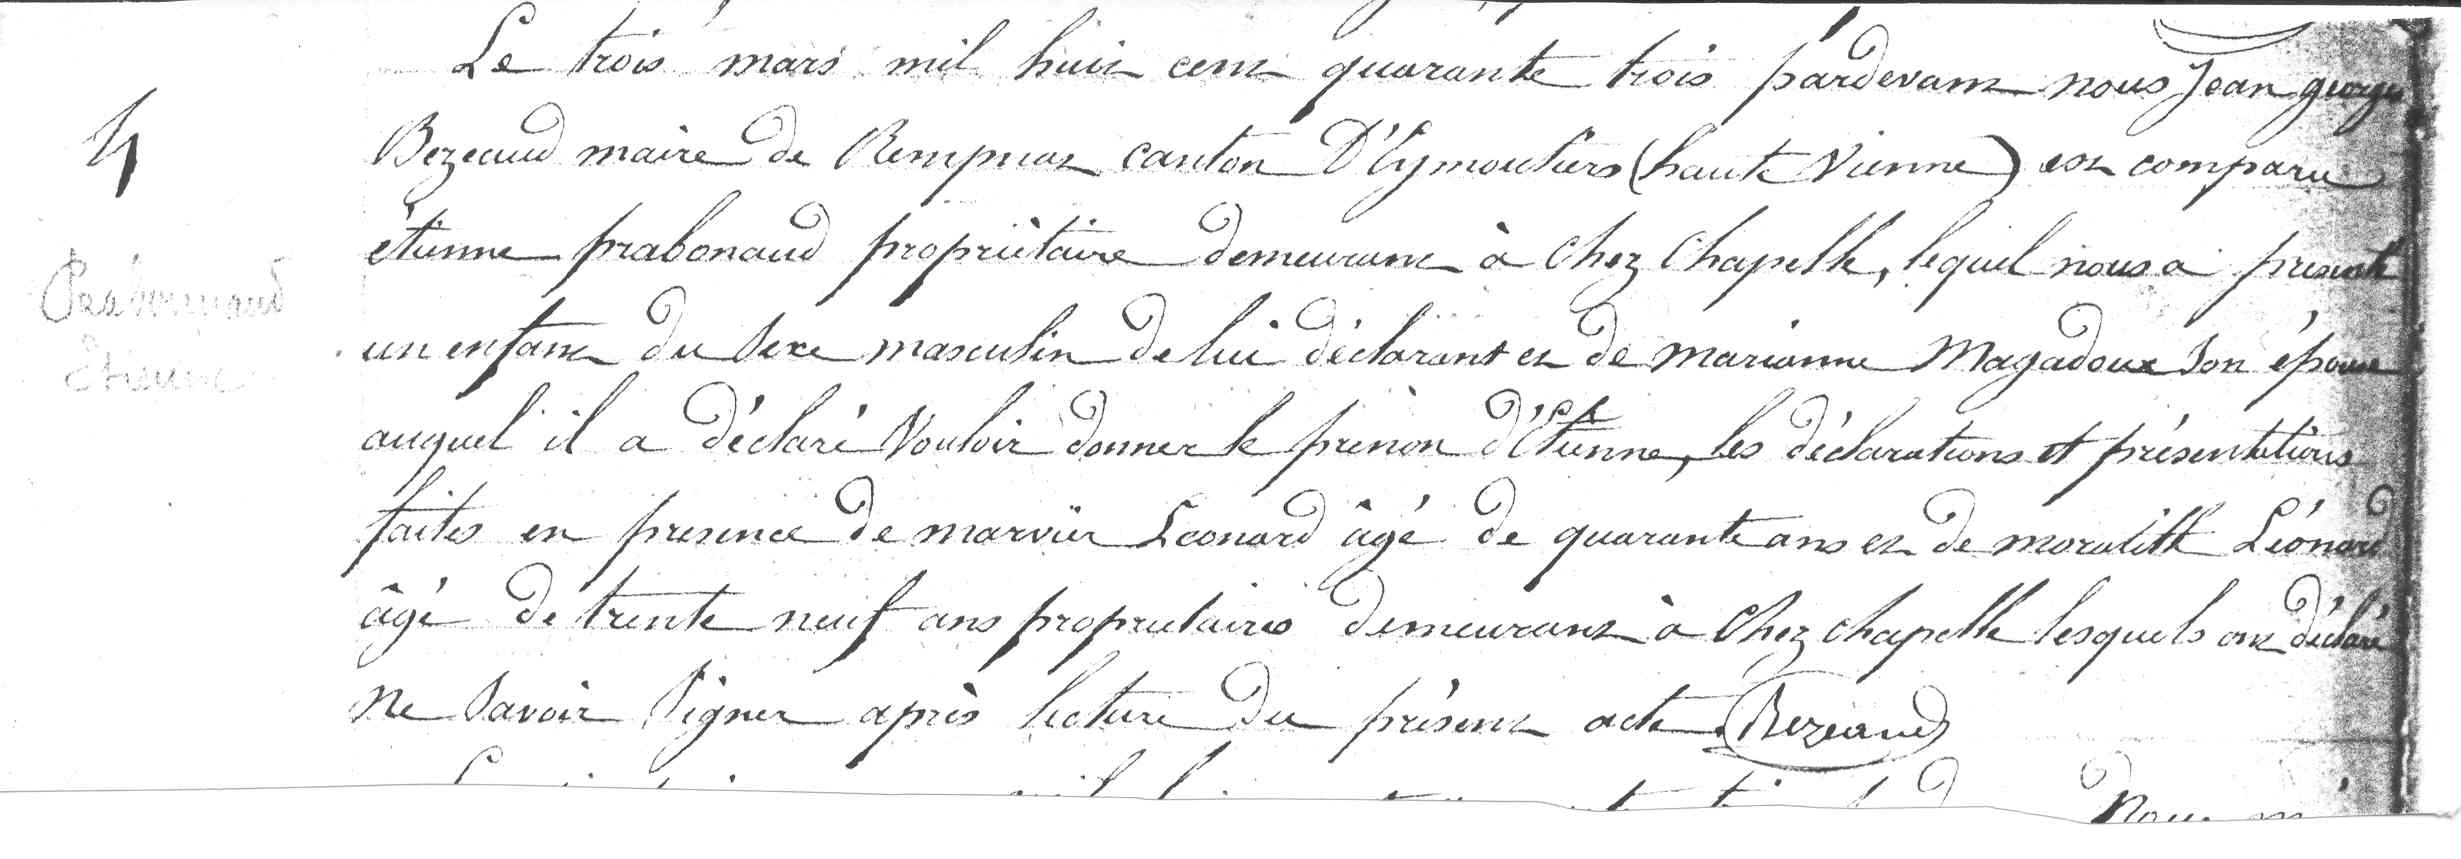 Le trois mars mil huit cent quarante trois pardevant nous Jean george
4
Bezeaud maire de Rempnat canton D'Eymoutiers (haute Vienne) est comparu
étienne prabonaud propriètaire demeurant à Chez Chapelle, lequel nous a présenté
Prabonnaud
Etienne
un enfant du sexe masculin de lui déclarant et de marianne Magadoux son épouse
auquel il a déclaré Vouloir donner le prénon d'Etienne, les déclarations et présentations
faites en presence de Leonard âgé de quarante ans et de Léonard
âgé de trente neuf ans propriètaires demeurant à Chez chapelle lesquels ont déclaré
Ne savoir signer après lecture du présent acte. Bezeaud